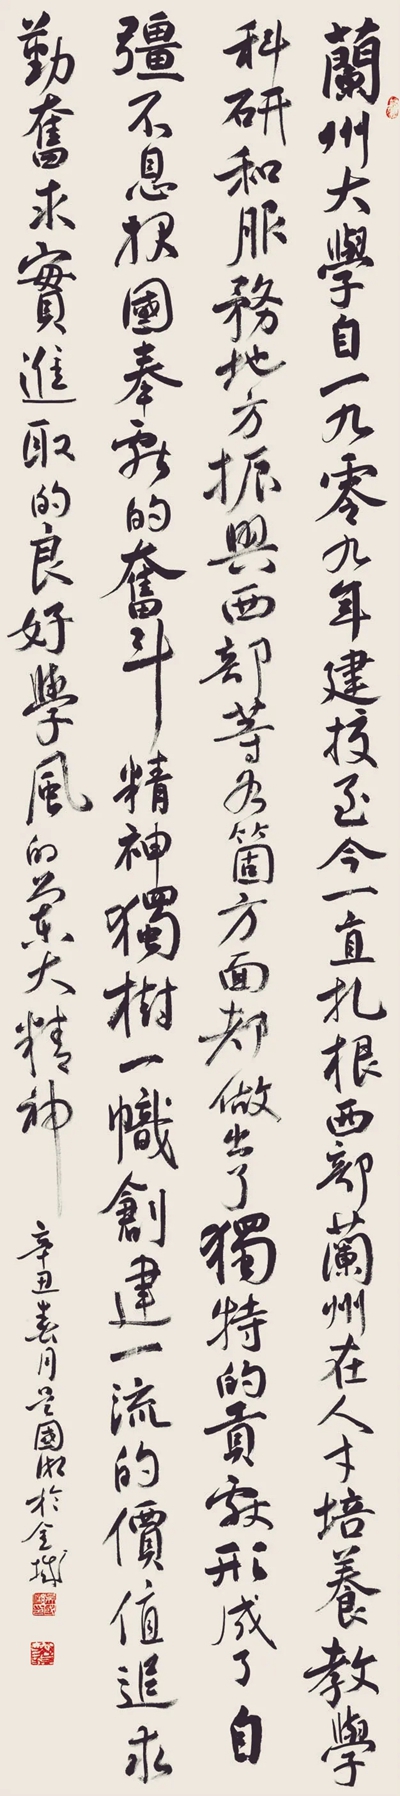 蘭州大學自一九零九年建校至今一直扎根西部蘭州在人才培養教學
科研和服務地方振興西部等各箇方面都做出了獨特的貢獻形成了自
彊不息報國奉獻的奮斗精神獨樹一幟創建一流的價值追求
勤奮求實進取的良好學風的蘭大精神
辛丑春月吳國 於金城